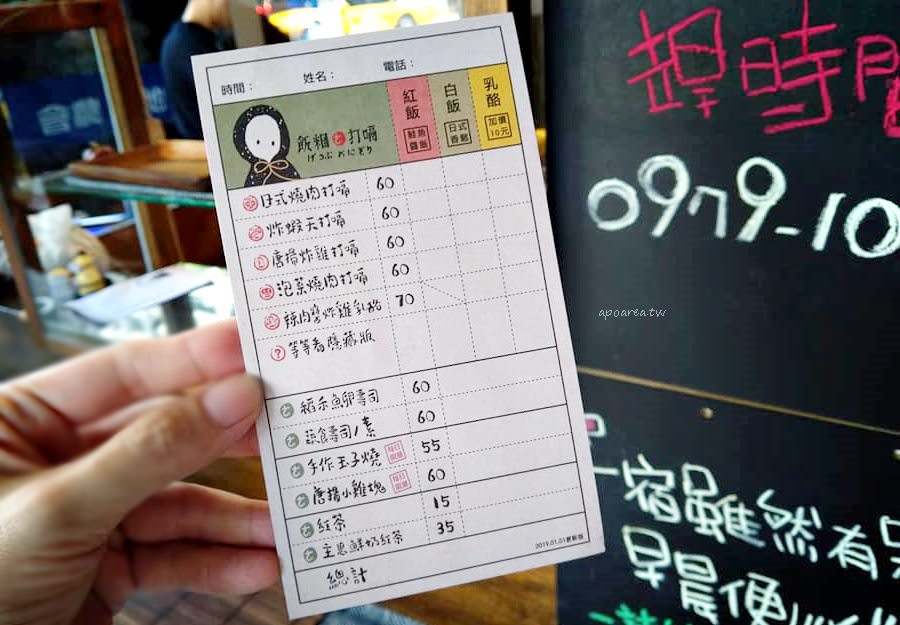 時間： 姓名： 電話：
飯糰と打嗝
げっぷ おにぎり
紅飯
鮭魚醬飯
白飯
日式香鬆
乳酪
加價10元
日式燒肉打嗝 60
炸蝦天打嗝 60
唐揚炸雞打嗝 60
泡菜燒肉打嗝 60
辣肉醬炸雞乳酪 70
? 等等看隱藏版
と 稻禾魚卵壽司 60
と 蔬食壽司/素 60
と 手作玉子燒 每日限量 55
と 唐揚小雞塊 每日限量 60
と 紅茶 15
と 主恩鮮奶紅茶 35
2019.01.01更新版
總計
趕時間
0979-10
apoareatw
一宿雖然有
早晨便